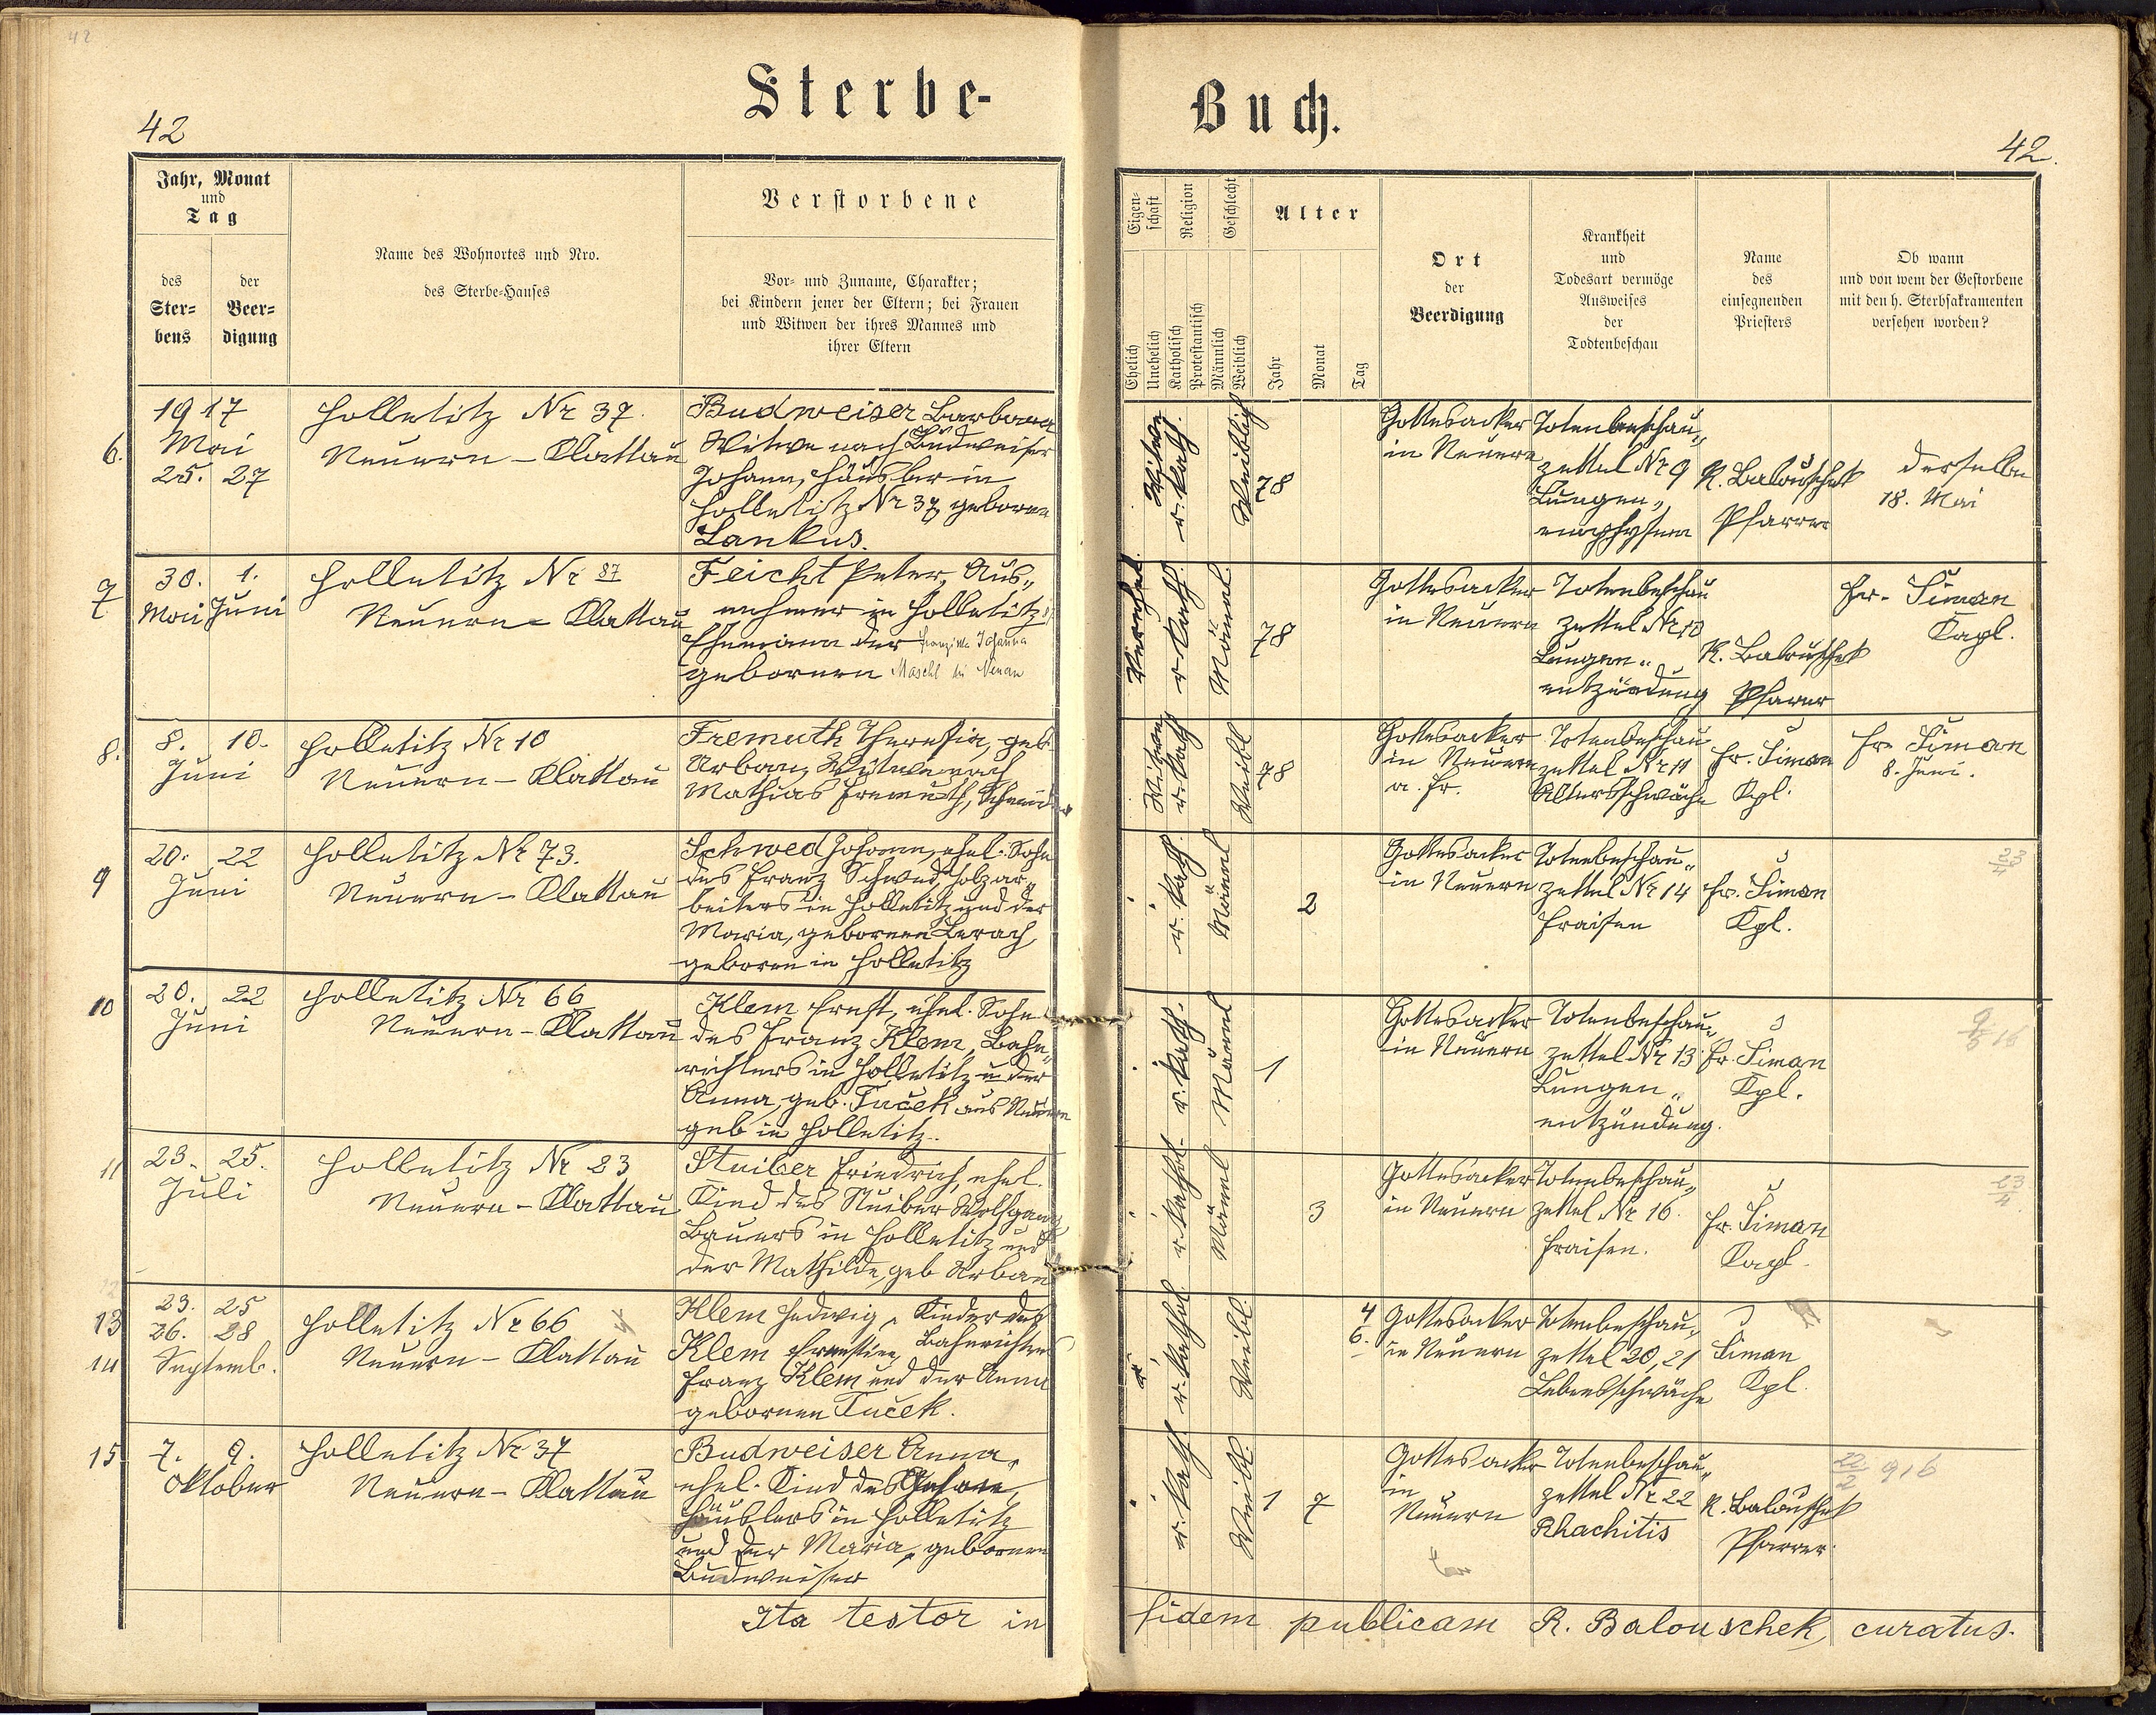 42
Sterbe-
Buch.
42
42.
Jahr, Monat
und
Tag
des
Ster-
bens
der
Beer-
digung
Name des Wohnortes und Nro.
des Sterbe-Hauses
Verstorbene
Vor- und Zuname, Charakter;
bei Kindern jener der Eltern; bei Frauen
und Witwen der ihres Mannes und
ihrer Eltern
Eigen-
schaft
Religion
Geschlecht
Alter
Ehelich
Unehelich
Katholisch
Protestantisch
Männlich
Weiblich
Jahr
Monat
Tag
Ort
der
Beerdigung
Krankheit
und
Todesart vermöge
Ausweises
der
Todtenbeschau
Name
des
einsegnenden
Priesters
Ob wann
und von wem der Gestorbene
mit den h. Sterbsakramenten
versehen worden?
6.
1917
Mai
25. 27
Holletitz Nr 37.
Neuern - Klattau
Budweiser Barbara
Witwe nach Budweiser
Johann, Häusler in
Holletitz Nr 37, geborene
Lankus.
Witwe
r. kath.
Weiblich
78
Gottesacker
in Neuern
Totenbeschau„
zettel Nr 9
Lungen„
emphysem
R. Balouschek
Pfarrer
derselbe
18. Mai
7
30. 1.
Mai Juni
Holletitz Nr 87
Neuern - Klattau
Feicht Peter, Aus„
nehmer in Holletitz
Ehemann der Franziska Johanna
geborenen Maschl in Neuern
Verehel.
r. Kath.
Männl.
78
Gottesacker
in Neuern
Totenbeschau
zettel Nr 10
Lungen„
entzündung
R. Balouschek
Pfarrer
Fr. Šiman
Kapl.
8.
8. 10.
Juni
Holletitz Nr 10
Neuern - Klattau
Fremuth Theresia, geb.
Urban, Witwe nach
Mathias Fremuth, Schneider
Witwe
r. kath
Weibl
78
Gottesacker
in Neuern
a. Fr.
Totenbeschau
zettel Nr 11
Altersschwäche
Fr. Šiman
Kpl.
Fr. Šiman
8. Juni.
9
20. 22
Juni
Holletitz Nr 73.
Neuern - Klattau
Schwed Johann, ehel. Sohn
des Franz Schwed, Holzar„
beiters in Holletitz und der
Maria, geborenen Berach,
geboren in Holletitz
r. kath.
Männl
2
Gottesacker
in Neuern
Totenbeschau„
zettel Nr 14
Fraisen
Fr. Šiman
Kpl.
23/4
10
20. 22
Juni
Holletitz Nr 66
Neuern - Klattau
Klem Ernst, ehel. Sohn
des Franz Klem, Bahn„
richters in Holletitz u der
Anna, geb. Tuček aus Neuern
geb in Holletitz.
r. kath.
Männl
1
Gottesacker
in Neuern
Totenbeschau„
zettel Nr 13
Lungen„
entzündung.
Fr. Šiman
Kpl.
11
23. 25.
Juli
Holletitz Nr 23
Neuern - Klattau
Stuiber Friedrich, ehel.
Kind des Stuiber Wolfgang
Bauers in Holletitz und
der Mathilde, geb Urban
r. kathol.
Männl
3
Gottesacker
in Neuern
Totenbeschau„
zettel Nr 16.
Fraisen.
Fr. Šiman
Kapl.
23/4
13
14
23. 25
26. 28
Septemb.
Holletitz Nr 66
Neuern - Klattau
Klem Hedwig, Kinder des
Klem Ernestine, Bahnrichters
Franz Klem und der Anna
geborenen Tuček.
r. kathol.
Weibl.
4
6.
Gottesacker
in Neuern
Totenbeschau„
zettel 20, 21
Lebensschwäche
Šiman
Kpl.
15
7. 9.
Oktober
Holletitz Nr 37
Neuern - Klattau
Budweiser Anna,
ehel. Kind des Johann,
Häuslers in Holletitz
und der Maria, geborenen
Budweiser
r. kath.
Weibl.
1 7
Gottesacker
in
Neuern
Totenbeschau„
zettel Nr 22
Rhachitis
R. Balouschek
Pfarrer.
22/2 916
Ita testor in fidem publicam R. Balouschek, curatus.